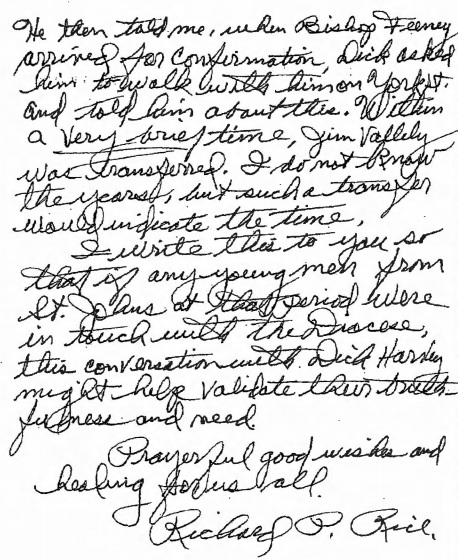 He then told me, when Bishop Feeney
arrived for Confirmation, Dick asked
him to walk with him on York St.
and told him about this. Within
a very brief time, Jim Vallely
was transferred. I do not know
the years, but such a transfer
would indicate the time.
I write this to you so
that if any young men from
St. Johns at that period were
in touch with the Diocese,
this conversation with Dick Harvey
might help validate their truth
fulness and need.
Prayerful good wishes and
healing for us all.
Richard P. Rice.